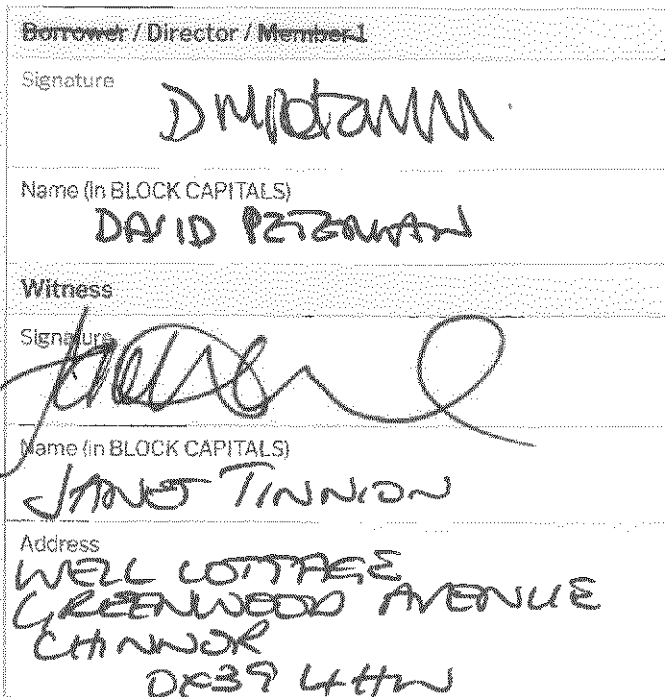 Borrower / Director / Member 1
Signature
Name (in BLOCK CAPITALS)
DAVID PETERMAN
Witness
Signature
Name (in BLOCK CAPITALS)
JANET TINNION
Address
WELL COTTAGE
GREENWOOD AVENUE
CHINNOR
OX39 4HW